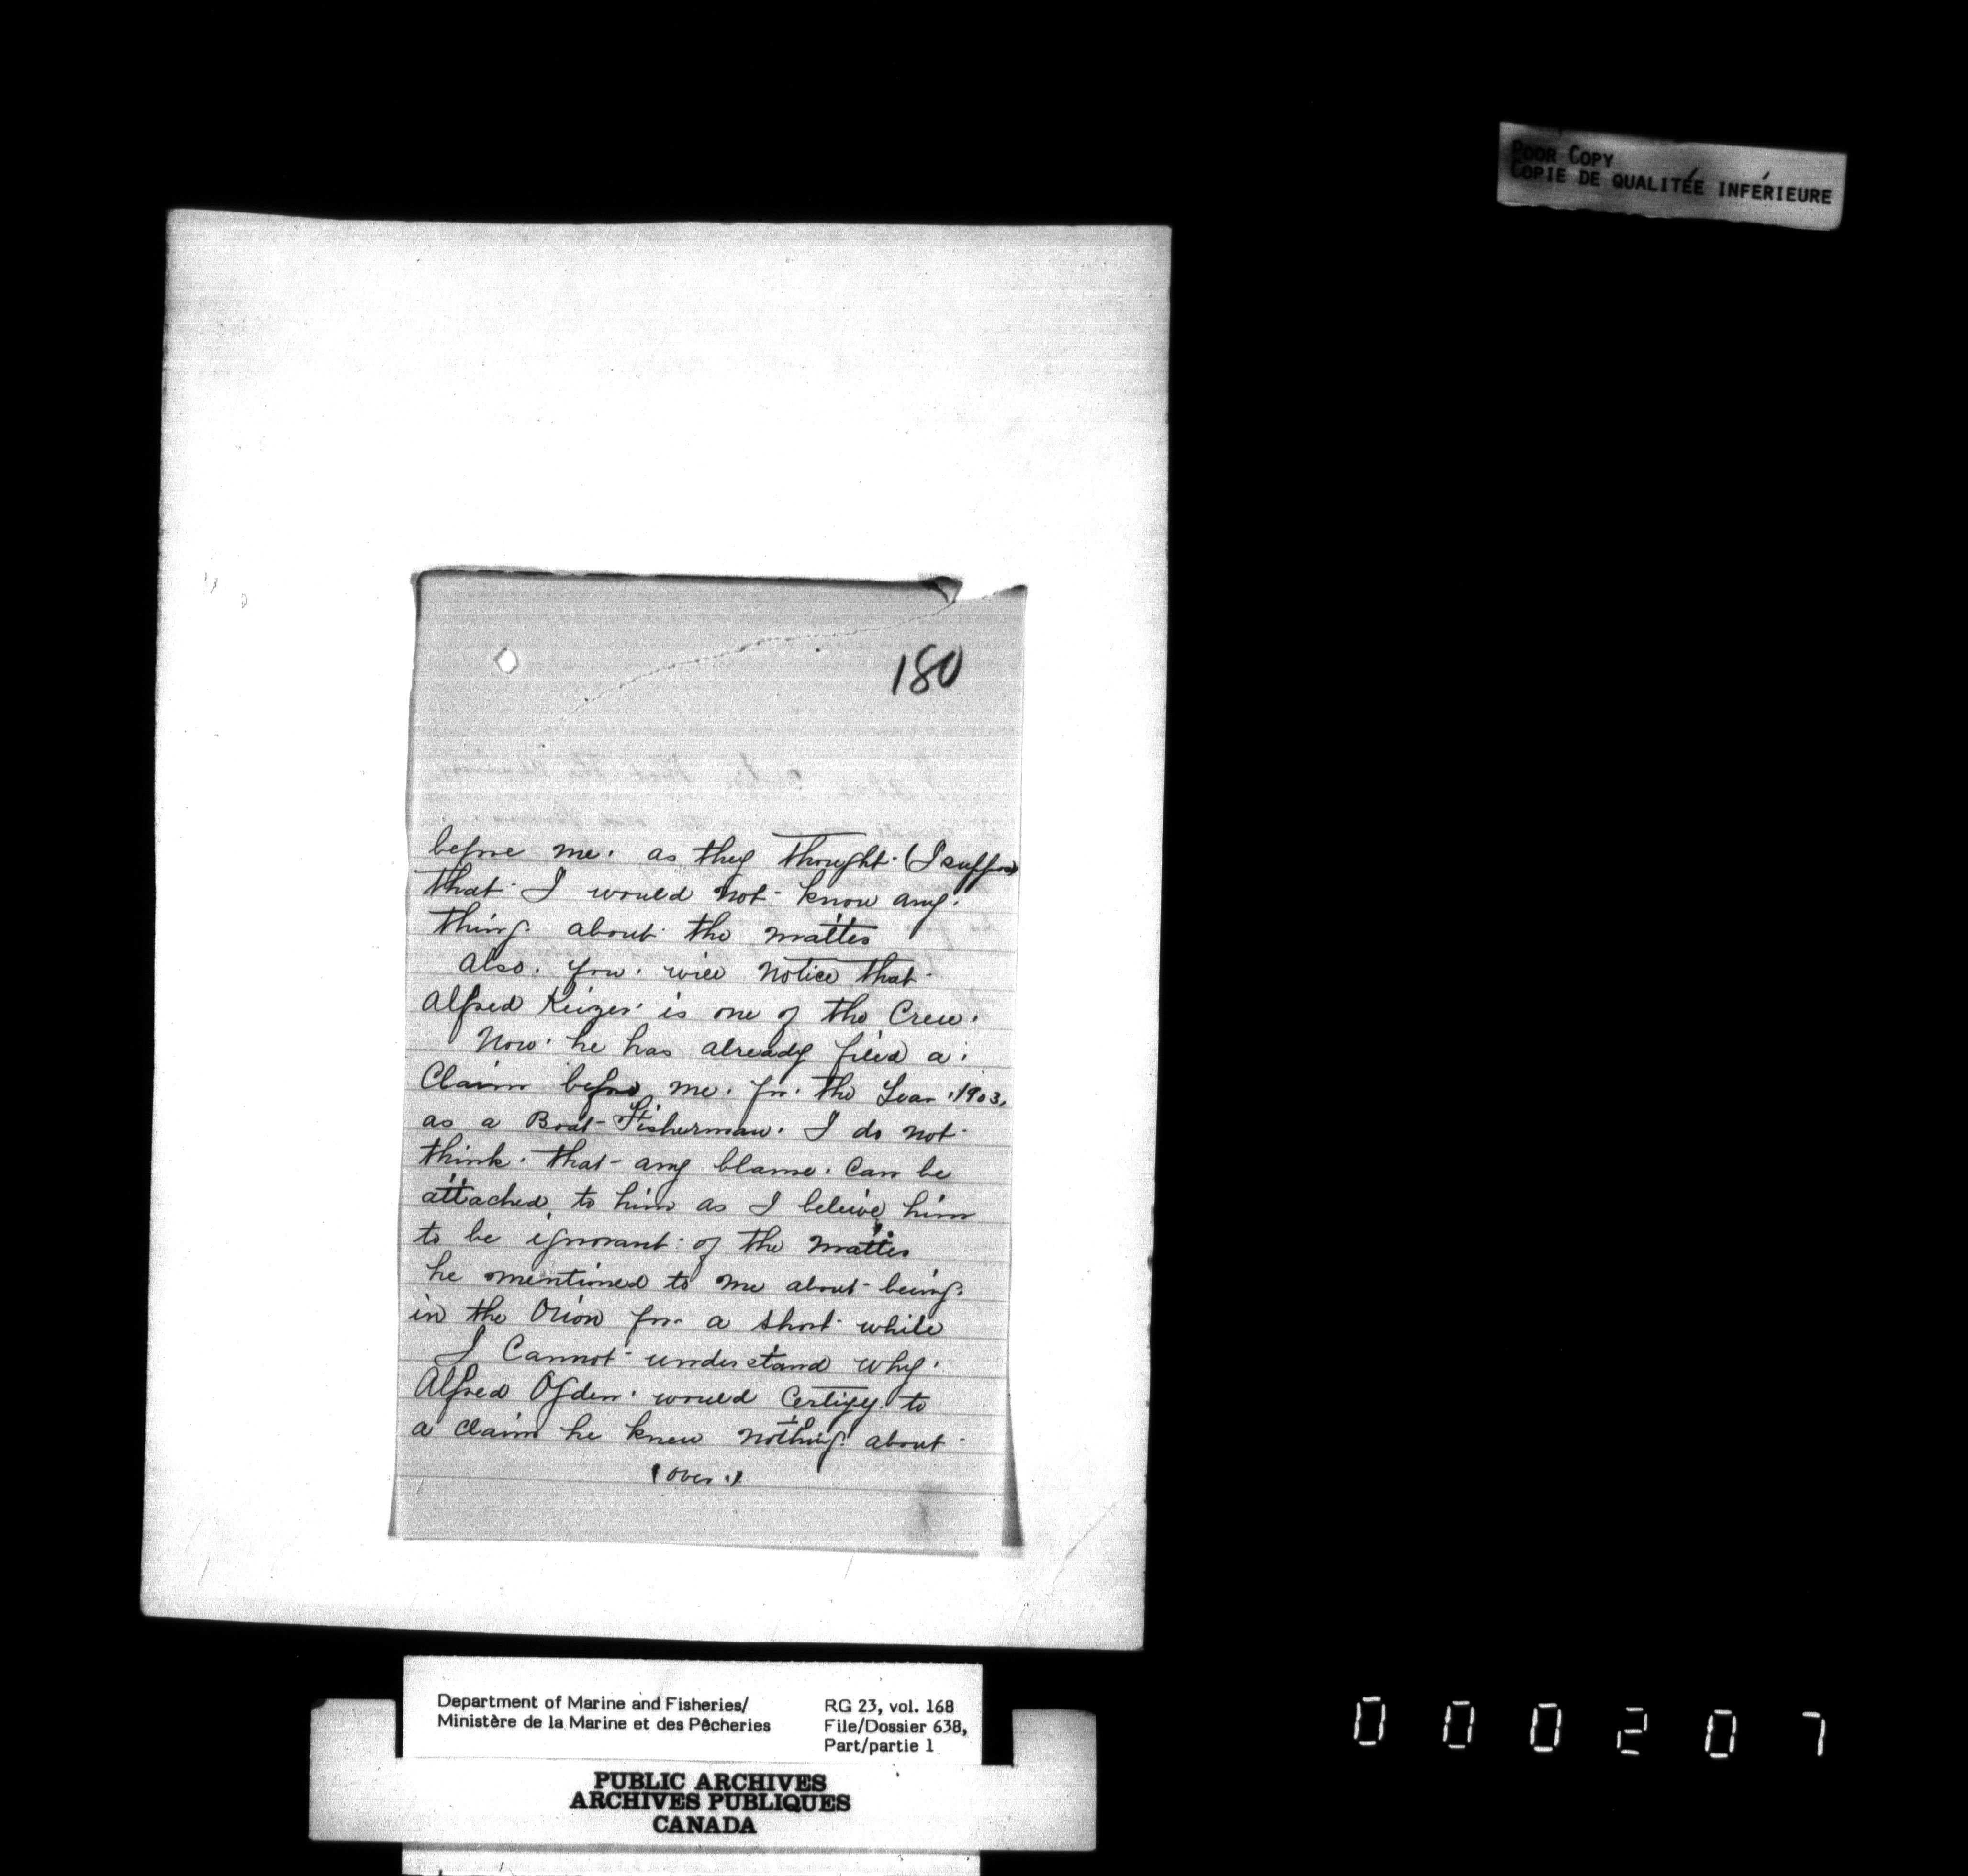 POOR COPY
COPIE DE QUALITÉE INFÉRIEURE
180
before me. as they thought. (I suppose)
that I would not know any.
thing. about the matter
also. you. will notice that
Alfred Keizer. is one of the Crew.
Now. he has already filed a.
Claim before me. for. the Year. 1903.
as a Boat-Fisherman. I do not
think. that any blame. Can be
attached, to him as I beleive him
to be ignorant. of the matter
he mentioned to me about being.
in the Orion for a short while
I Cannot understand why.
Alfred Ogden. would Certify. to
a claim he knew nothing. about
(over.)
Department of Marine and Fisheries/
Ministère de la Marine et des Pêcheries
RG 23, vol. 168
File/Dossier 638,
Part/partie 1
PUBLIC ARCHIVES
ARCHIVES PUBLIQUES
CANADA
000207